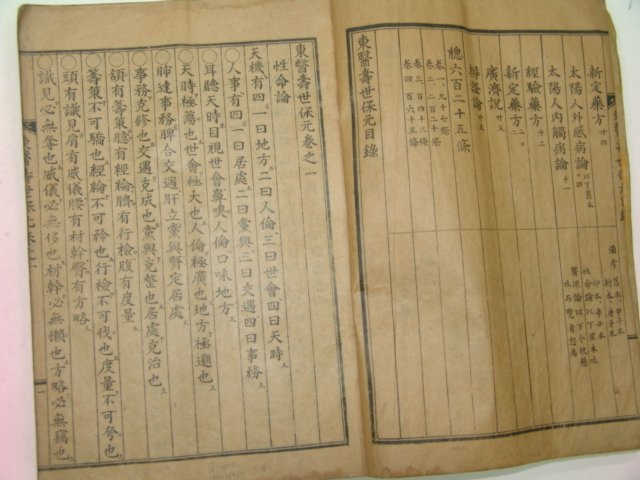 新定藥方 廿四
太陽人外感病論
太陽人內觸病論 十一
經驗藥方 十二
新定藥方 二
廣濟說 廿三
辨證論 廿五
總六百二十五條
卷一 一百九十七條
卷二 一百二十條
卷三 一百四十三條
卷四 一百六十五條
東醫壽世保元目錄
東醫壽世保元卷之一
性命論
天機有四一曰地方二曰人倫三曰世會四曰天時
人事有四一曰居處二曰黨與三曰交遇四曰事務
耳聽天時目視世會鼻嗅人倫口味地方
天時極蕩也世會極大也人倫極廣也地方極邈也
肺達事務脾合交遇肝立黨與腎定居處
事務克修也交遇克成也黨與克整也居處克治也
頷有籌策臆有經綸臍有行檢腹有度量
籌策不可驕也經綸不可矜也行檢不可伐也度量不可夸也
頭有識見肩有威儀腰有材幹臀有方略
識見必無奪也威儀必無侈也材幹必無懶也方略必無竊也